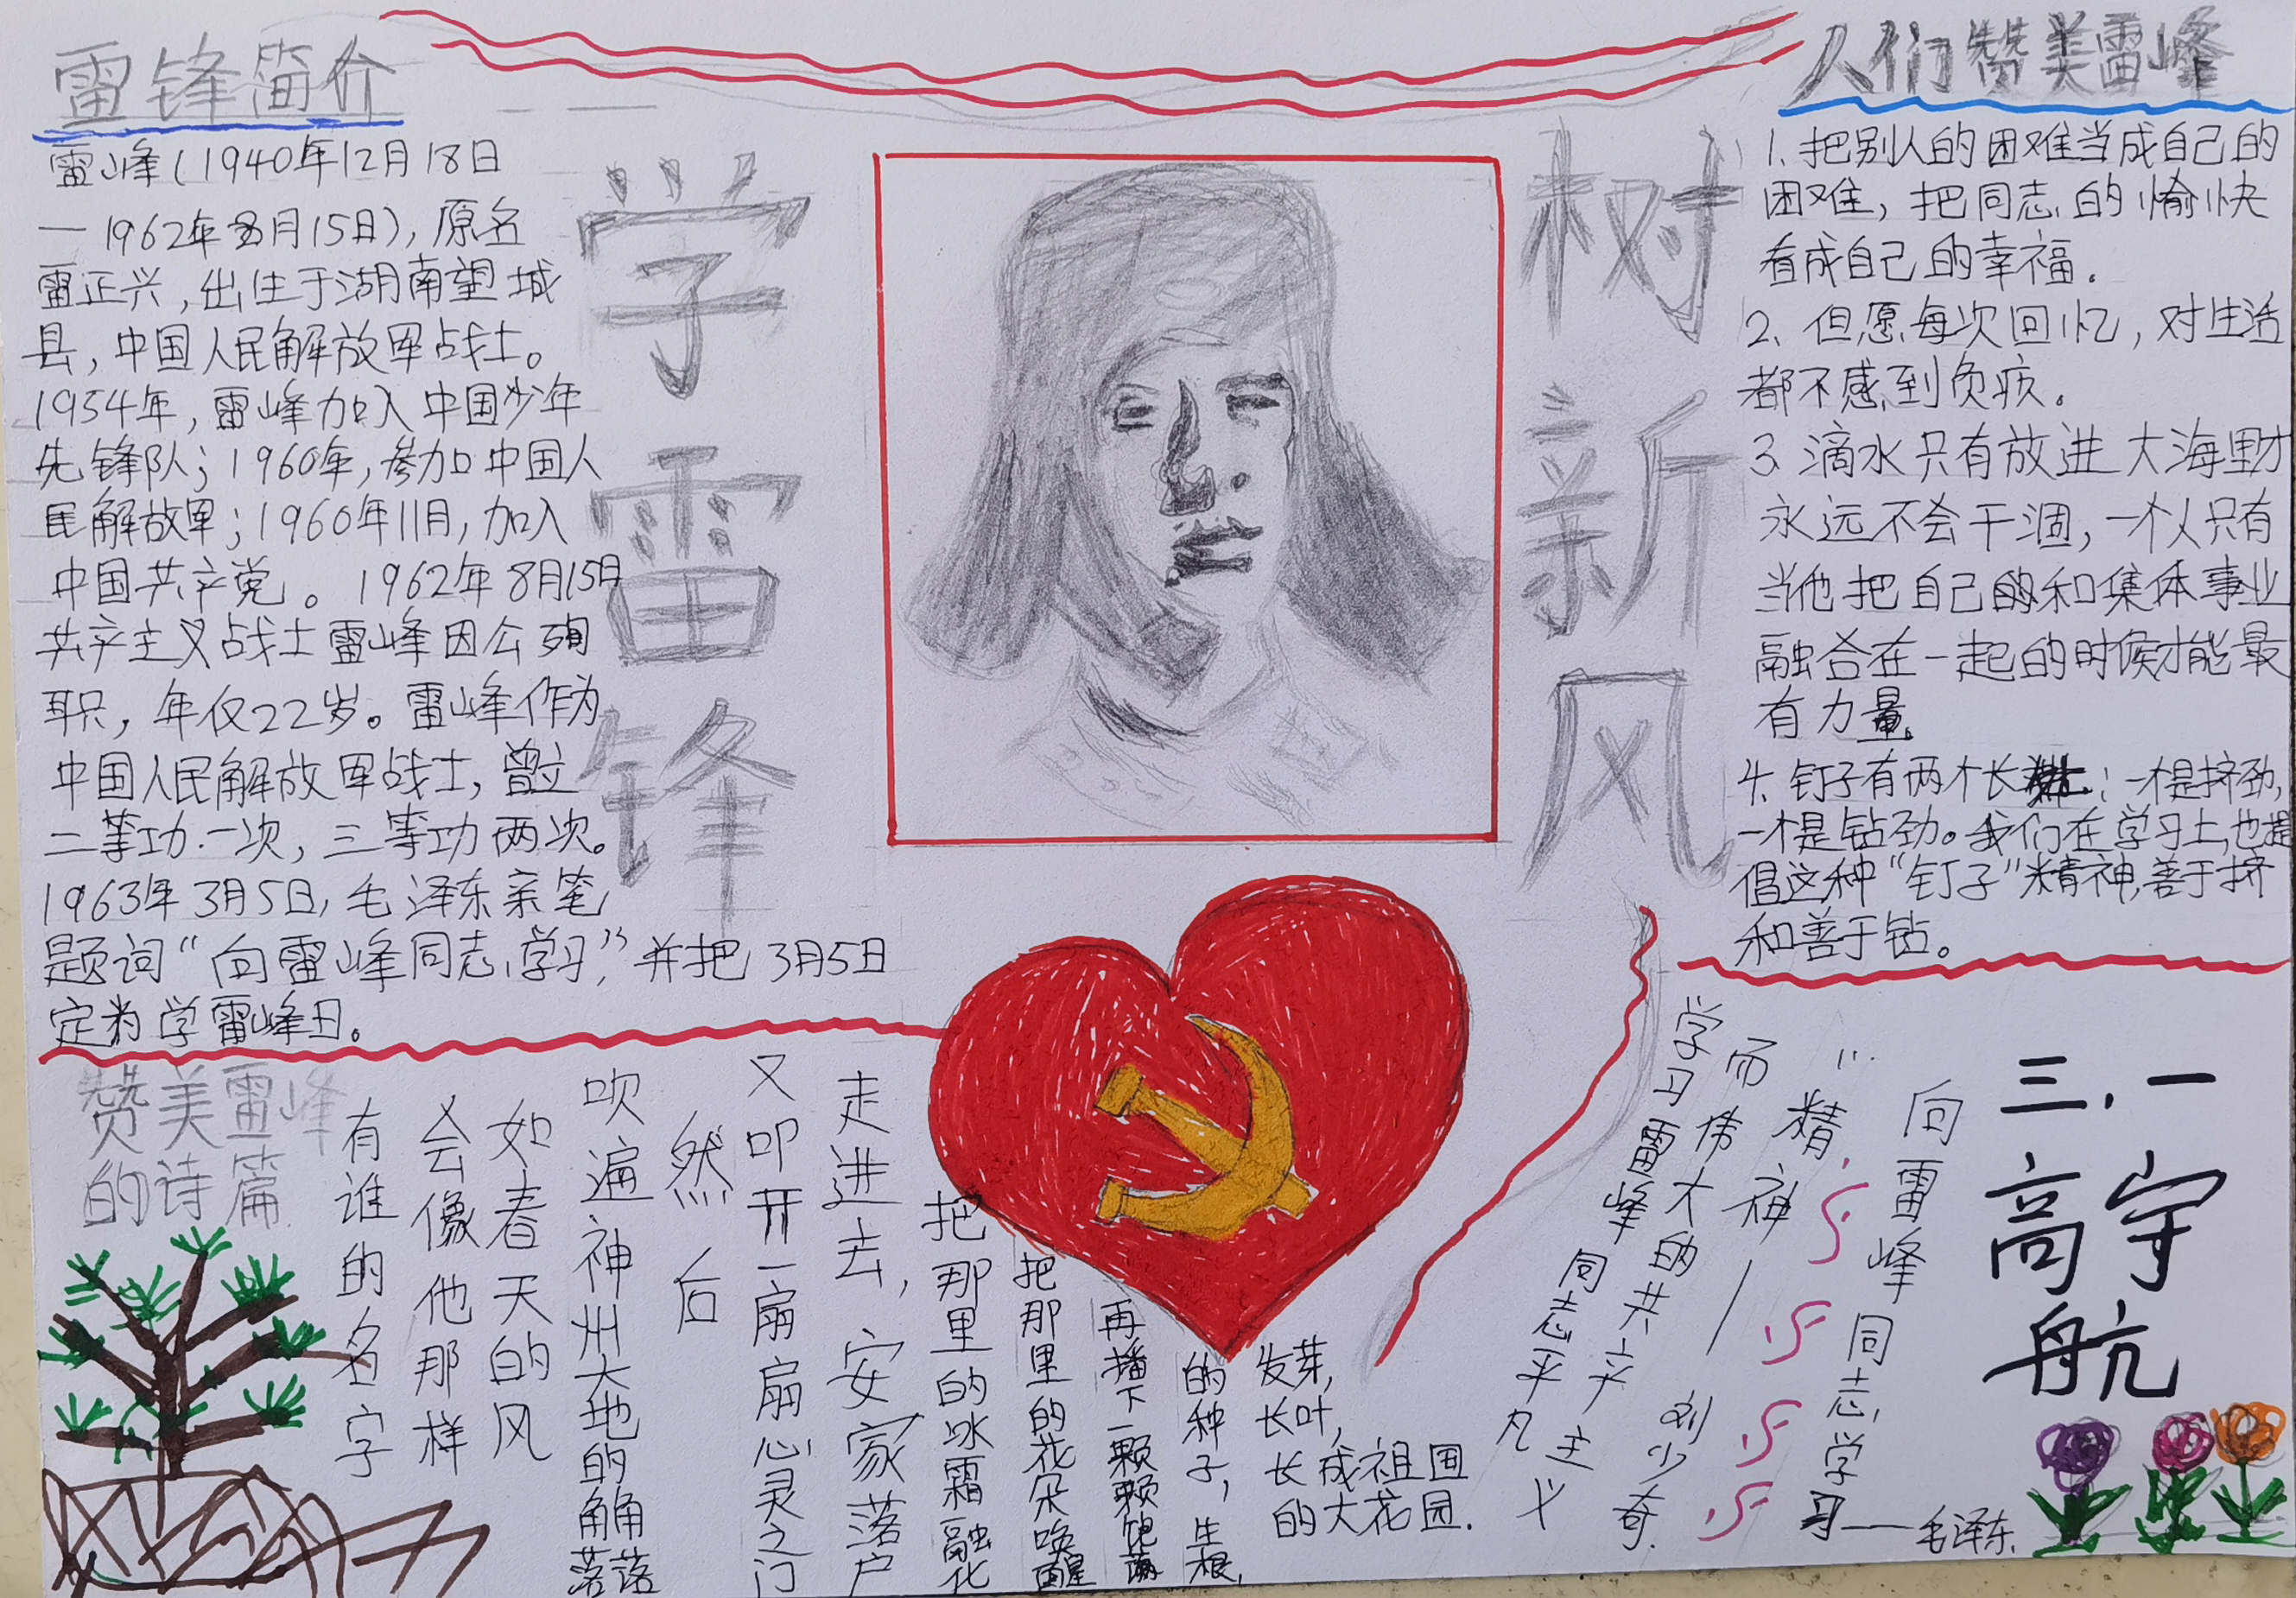 雷锋简介
雷峰(1940年12月18日
—1962年8月15日),原名
雷正兴,出生于湖南望城
县,中国人民解放军战士。
1954年,雷峰加入中国少年
先锋队;1960年,参加中国人
民解放军;1960年11月,加入
中国共产党。1962年8月15日
共产主义战士雷峰因公殉
职,年仅22岁。雷峰作为
中国人民解放军战士,曾立
二等功一次,三等功两次。
1963年3月5日,毛泽东亲笔
题词“向雷峰同志学习,”并把3月5日
定为学雷峰日。
学雷锋
树新风
人们赞美雷峰
1、把别人的困难当成自己的
困难,把同志的愉快
看成自己的幸福。
2、但愿每次回忆,对生活
都不感到负疚。
3、滴水只有放进大海里才
永远不会干涸,一个人只有
当他把自己的和集体事业
融合在一起的时候才能最
有力量。
4、钉子有两个长处:一个是挤劲,
一个是钻劲。我们在学习上,也提
倡这种“钉子”精神,善于挤
和善于钻。
赞美雷峰
的诗篇
有谁的名字
会像他那样
如春天的风
吹遍神州大地的角角落落
然后
又叩开一扇扇心灵之门
走进去,安家落户
把那里的冰霜融化
把那里的花朵唤醒
再播下一颗颗饱满
的种子,生根,
发芽,
长叶,
长成祖国
的大花园.
学习雷峰同志平凡
而伟大的共产主义
精神—刘少奇.
向雷峰同志学习——毛泽东.
三.一
高宇
航